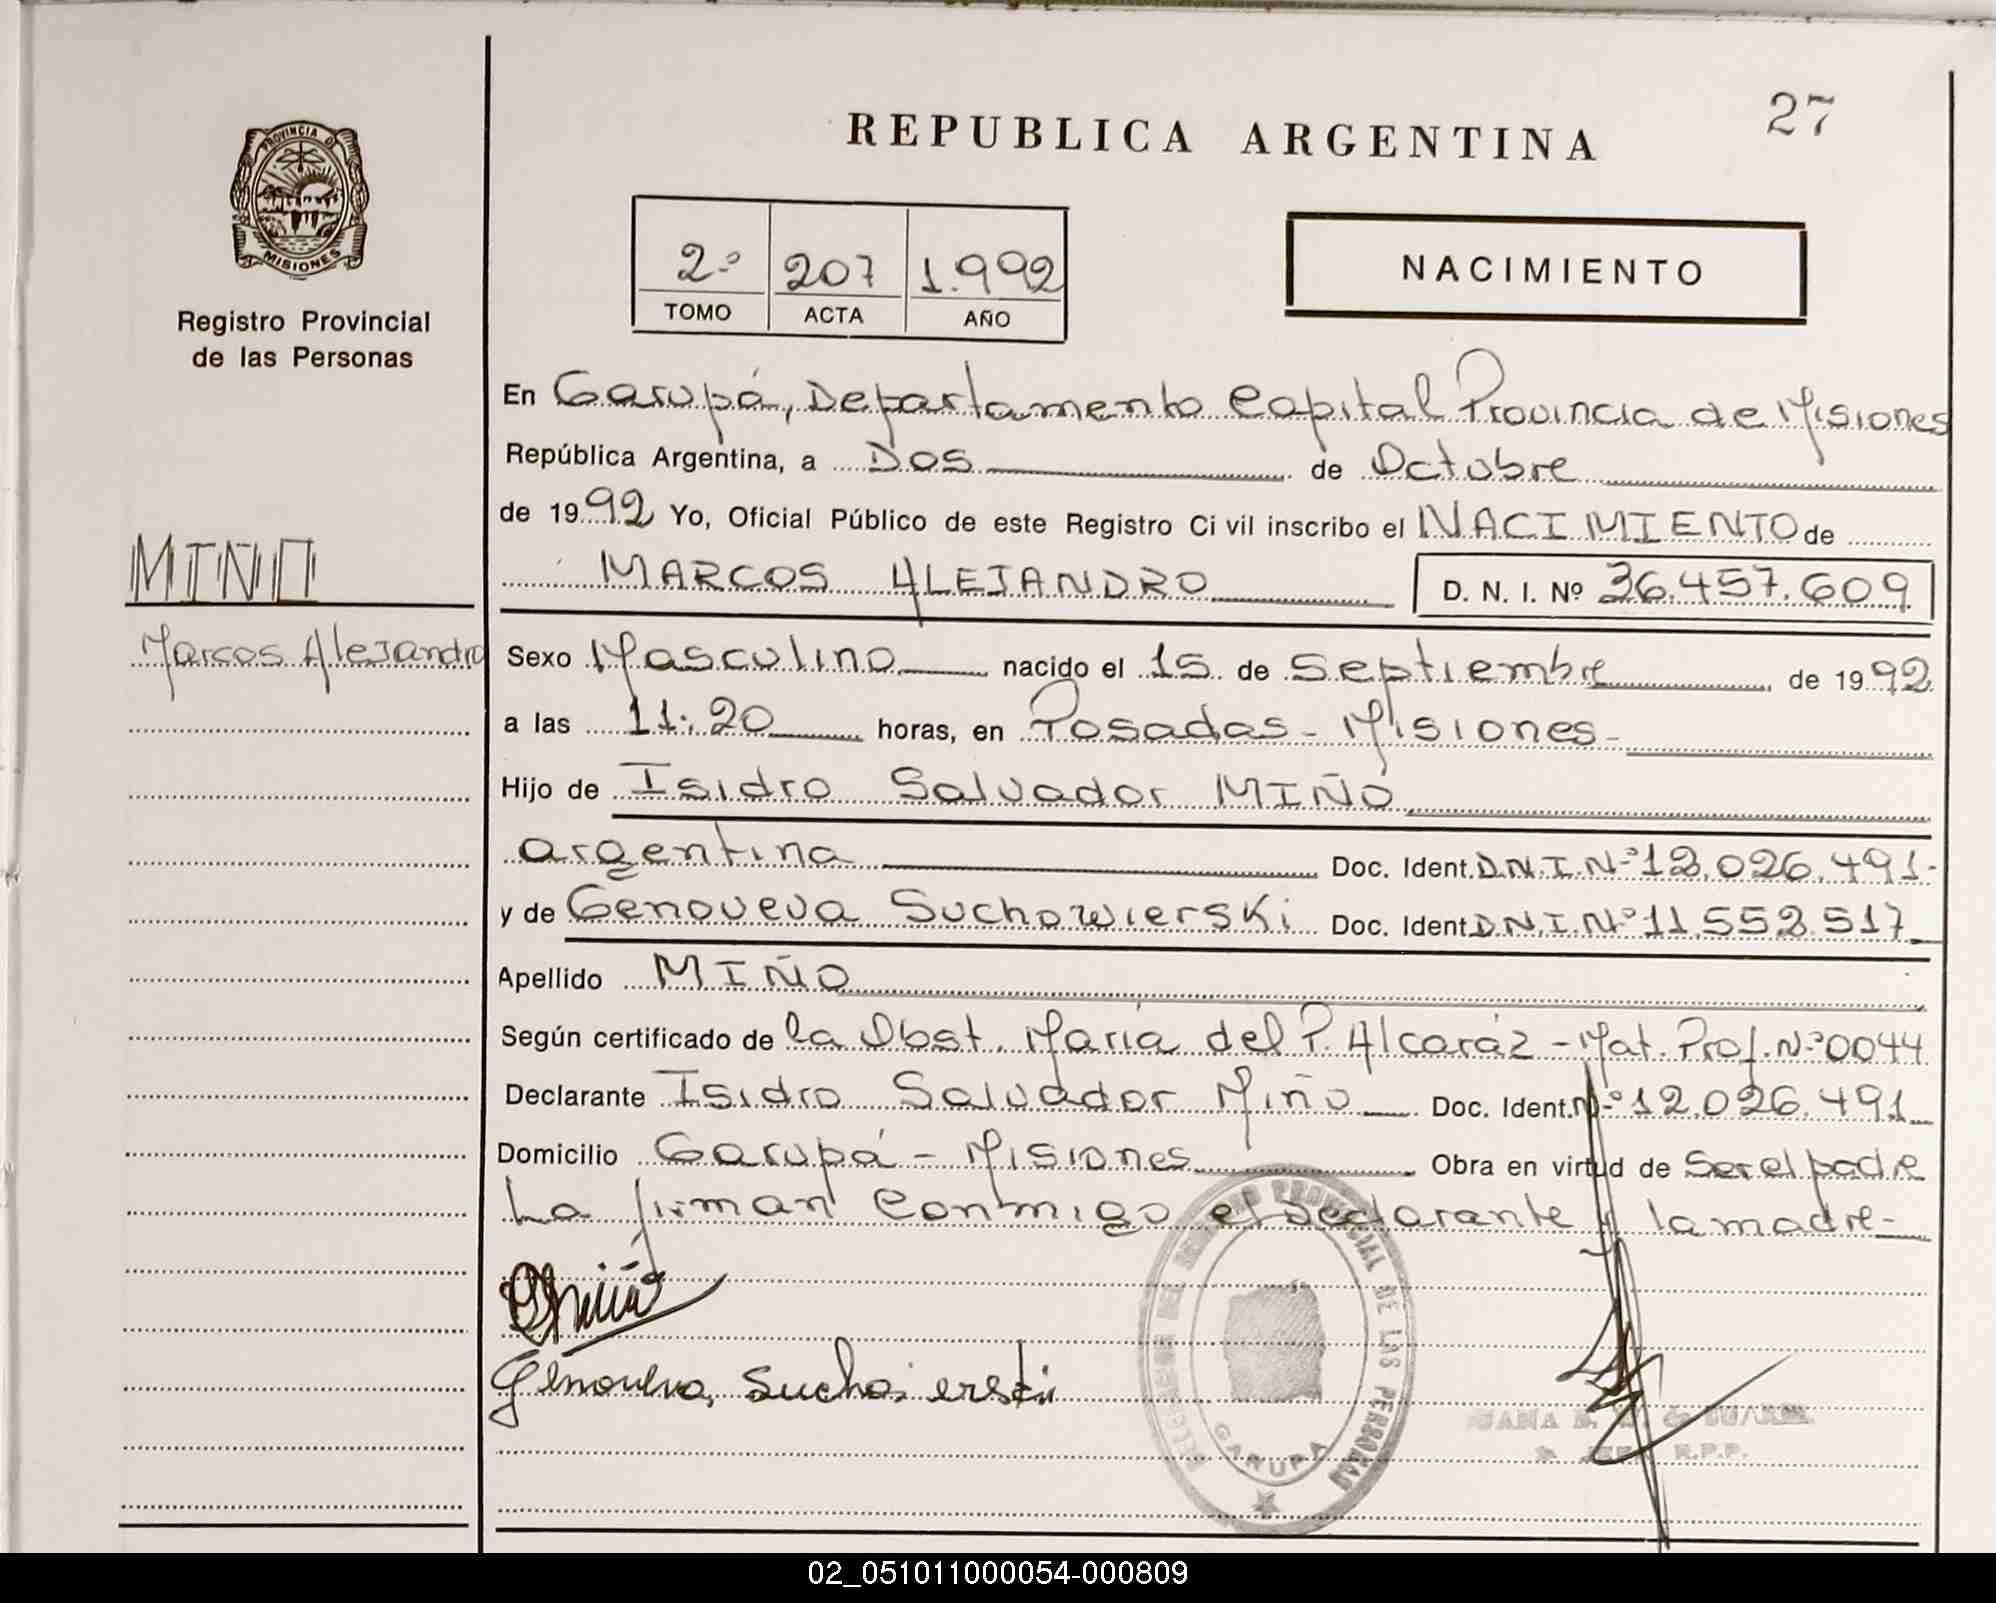 27
REPUBLICA ARGENTINA
PROVINCIA DE
MISIONES
Registro Provincial
de las Personas
2º 207 1.992
TOMO ACTA AÑO
NACIMIENTO
En Garupá, Departamento Capital Provincia de Misiones
República Argentina, a Dos de Octubre
de 1992 Yo, Oficial Público de este Registro Ci vil inscribo el NACIMIENTO de
MARCOS ALEJANDRO D. N. I. Nº 36.457.609
MIÑO
Marcos Alejandro
Sexo Masculino nacido el 15 de Septiembre de 1992
a las 11:20 horas, en Posadas - Misiones -
Hijo de Isidro Salvador MIÑO
argentina Doc. Ident. D.N.I.Nº 12.026.491-
y de Genoveva Suchowierski Doc. Ident D.N.I.Nº 11.552.517
Apellido MIÑO
Según certificado de la Obst. María del P. Alcaráz - Mat. Prof. Nº 0044
Declarante Isidro Salvador Miño Doc. Ident. Nº 12.026.491
Domicilio Garupá - Misiones Obra en virtud de Ser el padre
La firman conmigo el declarante y la madre-
PROVINCIAL DE LAS PERSONAS
GARUPA
Genoveva
JUANA
R.P.P.
02_051011000054-000809